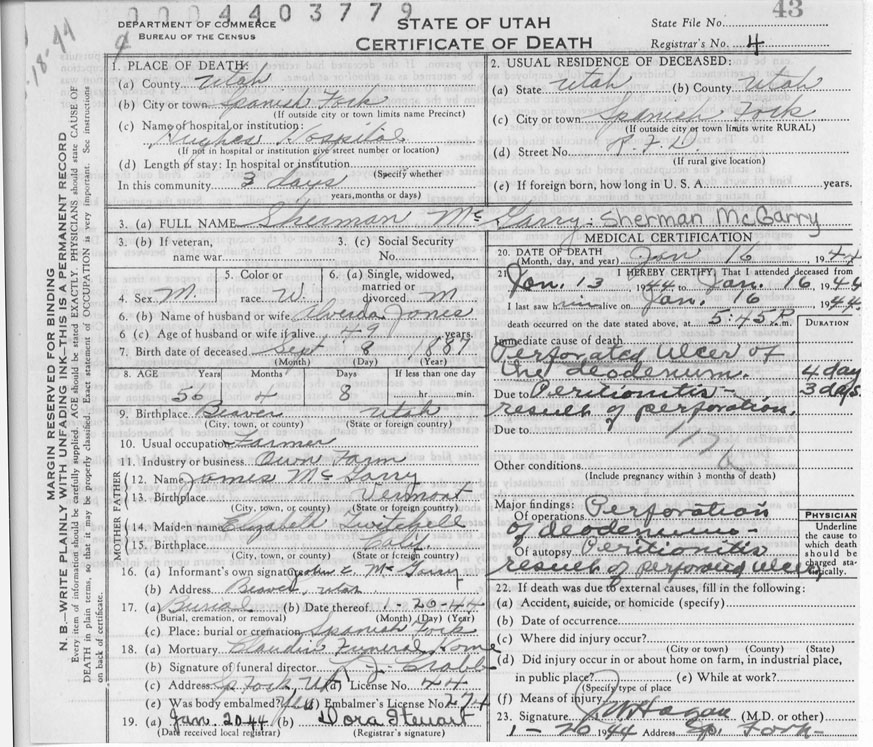 0004403779
43
DEPARTMENT OF COMMERCE
BUREAU OF THE CENSUS
STATE OF UTAH
CERTIFICATE OF DEATH
State File No.
Registrar's No. 4
18-44
MARGIN RESERVED FOR BINDING
N. B.—WRITE PLAINLY WITH UNFADING INK—THIS IS A PERMANENT RECORD
Every item of information should be carefully supplied. AGE should be stated EXACTLY. PHYSICIANS should state CAUSE OF
DEATH in plain terms, so that it may be properly classified. Exact statement of OCCUPATION is very important. See instructions
on back of certificate.
1. PLACE OF DEATH:
(a) County Utah
(b) City or town Spanish Fork
(If outside city or town limits name Precinct)
(c) Name of hospital or institution:
Hughes Hospital
(If not in hospital or institution give street number or location)
(d) Length of stay: In hospital or institution
(Specify whether
In this community 3 days
years, months or days)
2. USUAL RESIDENCE OF DECEASED:
(a) State Utah (b) County Utah
(c) City or town Spanish Fork
(If outside city or town limits write RURAL)
(d) Street No. R.F.D.
(If rural give location)
(e) If foreign born, how long in U. S. A. years.
3. (a) FULL NAME Sherman McGarry: Sherman McGarry
3. (b) If veteran,
name war
3. (c) Social Security
No.
4. Sex M.
5. Color or
race W.
6. (a) Single, widowed,
married or
divorced M
6. (b) Name of husband or wife Alverda Jones
6. (c) Age of husband or wife if alive 49 years.
7. Birth date of deceased Sept 8 1887
(Month) (Day) (Year)
8. AGE Years Months Days If less than one day
56 4 8 hr. min.
9. Birthplace Beaver Utah
(City, town, or county) (State or foreign country)
10. Usual occupation Farmer
11. Industry or business Own Farm
FATHER
12. Name James McGarry
13. Birthplace Vermont
(City, town, or county) (State or foreign country)
MOTHER
14. Maiden name Elizabeth Twitchell
15. Birthplace Calif.
(City, town, or county) (State or foreign country)
16. (a) Informant's own signature John E. McGarry
(b) Address Beaver, Utah
17. (a) Burial (b) Date thereof 1-20-44
(Burial, cremation, or removal) (Month) (Day) (Year)
(c) Place: burial or cremation Spanish Fork
18. (a) Mortuary Claudin Funeral Home
(b) Signature of funeral director J. Crabb
(c) Address Sp Fork, Ut (d) License No. 44
(e) Was body embalmed? Yes Embalmer's License No. 274
19. (a) Jan. 20 44 (b) Dora Stewart
(Date received local registrar) (Registrar's signature)
MEDICAL CERTIFICATION
20. DATE OF DEATH Jan 16, 1944
(Month, day, and year)
21. I HEREBY CERTIFY, That I attended deceased from
Jan. 13 1944 to Jan. 16, 1944
I last saw him alive on Jan. 16 1944.
death occurred on the date stated above, at 5:45 P.m.
DURATION
Immediate cause of death
Perforated Ulcer of
the deodenum. 4 day
Due to Peritionitis- 3 days.
result of perforation.
Due to
Other conditions
(Include pregnancy within 3 months of death)
Major findings:
Of operations Perforation
of deodenum-
Of autopsy Peritionitis
result of perforated ulcer,
PHYSICIAN
Underline
the cause to
which death
should be
charged sta-
tistically.
22. If death was due to external causes, fill in the following:
(a) Accident, suicide, or homicide (specify)
(b) Date of occurrence
(c) Where did injury occur?
(City or town) (County) (State)
(d) Did injury occur in or about home on farm, in industrial place,
in public place? (e) While at work?
(Specify type of place
(f) Means of injury
23. Signature J W Hagan (M.D. or other)
1-20 1944 Address Sp. Fork-